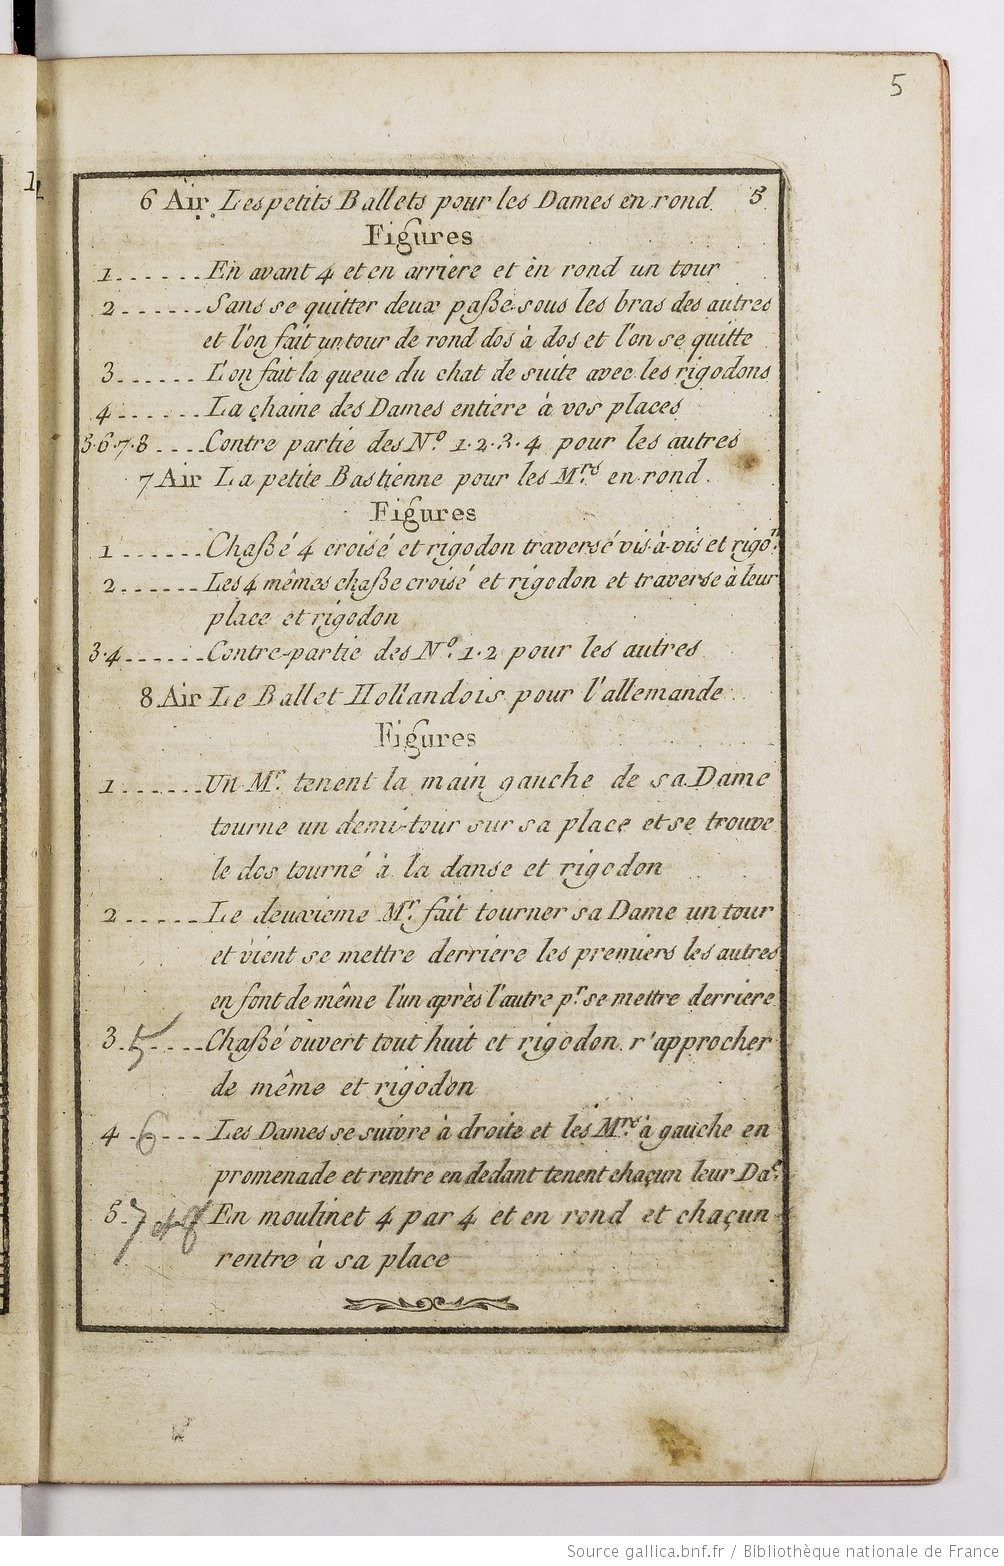 5
1
6 Air. Les petits Ballets pour les Dames en rond. 5
Figures
1......En avant 4 et en arriere et en rond un tour
2......Sans se quitter deux paße sous les bras des autres
et l'on fait un tour de rond dos à dos et l'on se quitte
3......L'on fait la queue du chat de suite avec les rigodons
4......La chaine des Dames entiere à vos places
5.6.7.8....Contre partie des No. 1.2.3.4 pour les autres
7 Air La petite Bastienne pour les Mrs. en rond.
Figures
1......Chaßé 4 croisé et rigodon traversé vis-à-vis et rigon.
2......Les 4 mêmes chaße croisé et rigodon et traverse à leur
place et rigodon
3.4......Contre-partie des No. 1.2 pour les autres
8 Air Le Ballet Hollandois pour l'allemande
Figures
1......Un Mr. tenent la main gauche de sa Dame
tourne un demi-tour sur sa place et se trouve
le dos tourné à la danse et rigodon
2.....Le deuxieme Mr. fait tourner sa Dame un tour
et vient se mettre derriere les premiers les autres
en font de même l'un après l'autre pr. se mettre derriere
3.5....Chaßé ouvert tout huit et rigodon. r'approcher
de même et rigodon
4.6...Les Dames se suivre à droite et les Mrs. à gauche en
promenade et rentre en dedant tenent chaçun leur Dae.
5.7 et 8 En moulinet 4 par 4 et en rond et chaçun
rentre à sa place
Source gallica.bnf.fr / Bibliothèque nationale de France